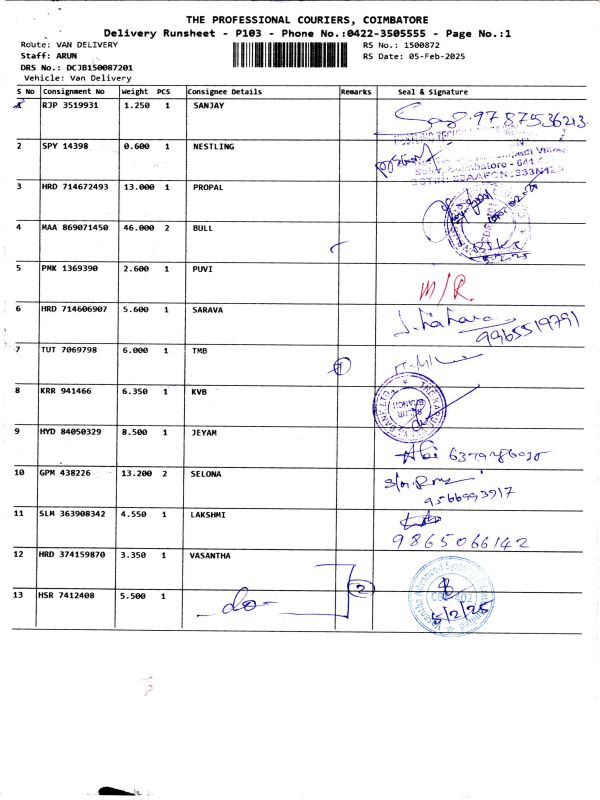 THE PROFESSIONAL COURIERS, COIMBATORE
Delivery Runsheet - P103 - Phone No.:0422-3505555 - Page No.:1
Route: VAN DELIVERY RS No.: 1500872
Staff: ARUN RS Date: 05-Feb-2025
DRS No.: DCJB150087201
Vehicle: Van Delivery
S No Consignment No Weight PCS Consignee Details Remarks Seal & Signature
1 RJP 3519931 1.250 1 SANJAY 9787536213
2 SPY 14398 0.600 1 NESTLING
3 HRD 714672493 13.000 1 PROPAL
4 MAA 869071450 46.000 2 BULL
5 PMK 1369390 2.600 1 PUVI M/R.
6 HRD 714606907 5.600 1 SARAVA 9965519791
7 TUT 7069798 6.000 1 TMB 1
8 KRR 941466 6.350 1 KVB
9 HYD 84050329 8.500 1 JEYAM Abi
10 GPM 438226 13.200 2 SELONA 9566993917
11 SLM 363908342 4.550 1 LAKSHMI 9865066142
12 HRD 374159870 3.350 1 VASANTHA
13 HSR 7412408 5.500 1 -do- 2 5/2/25